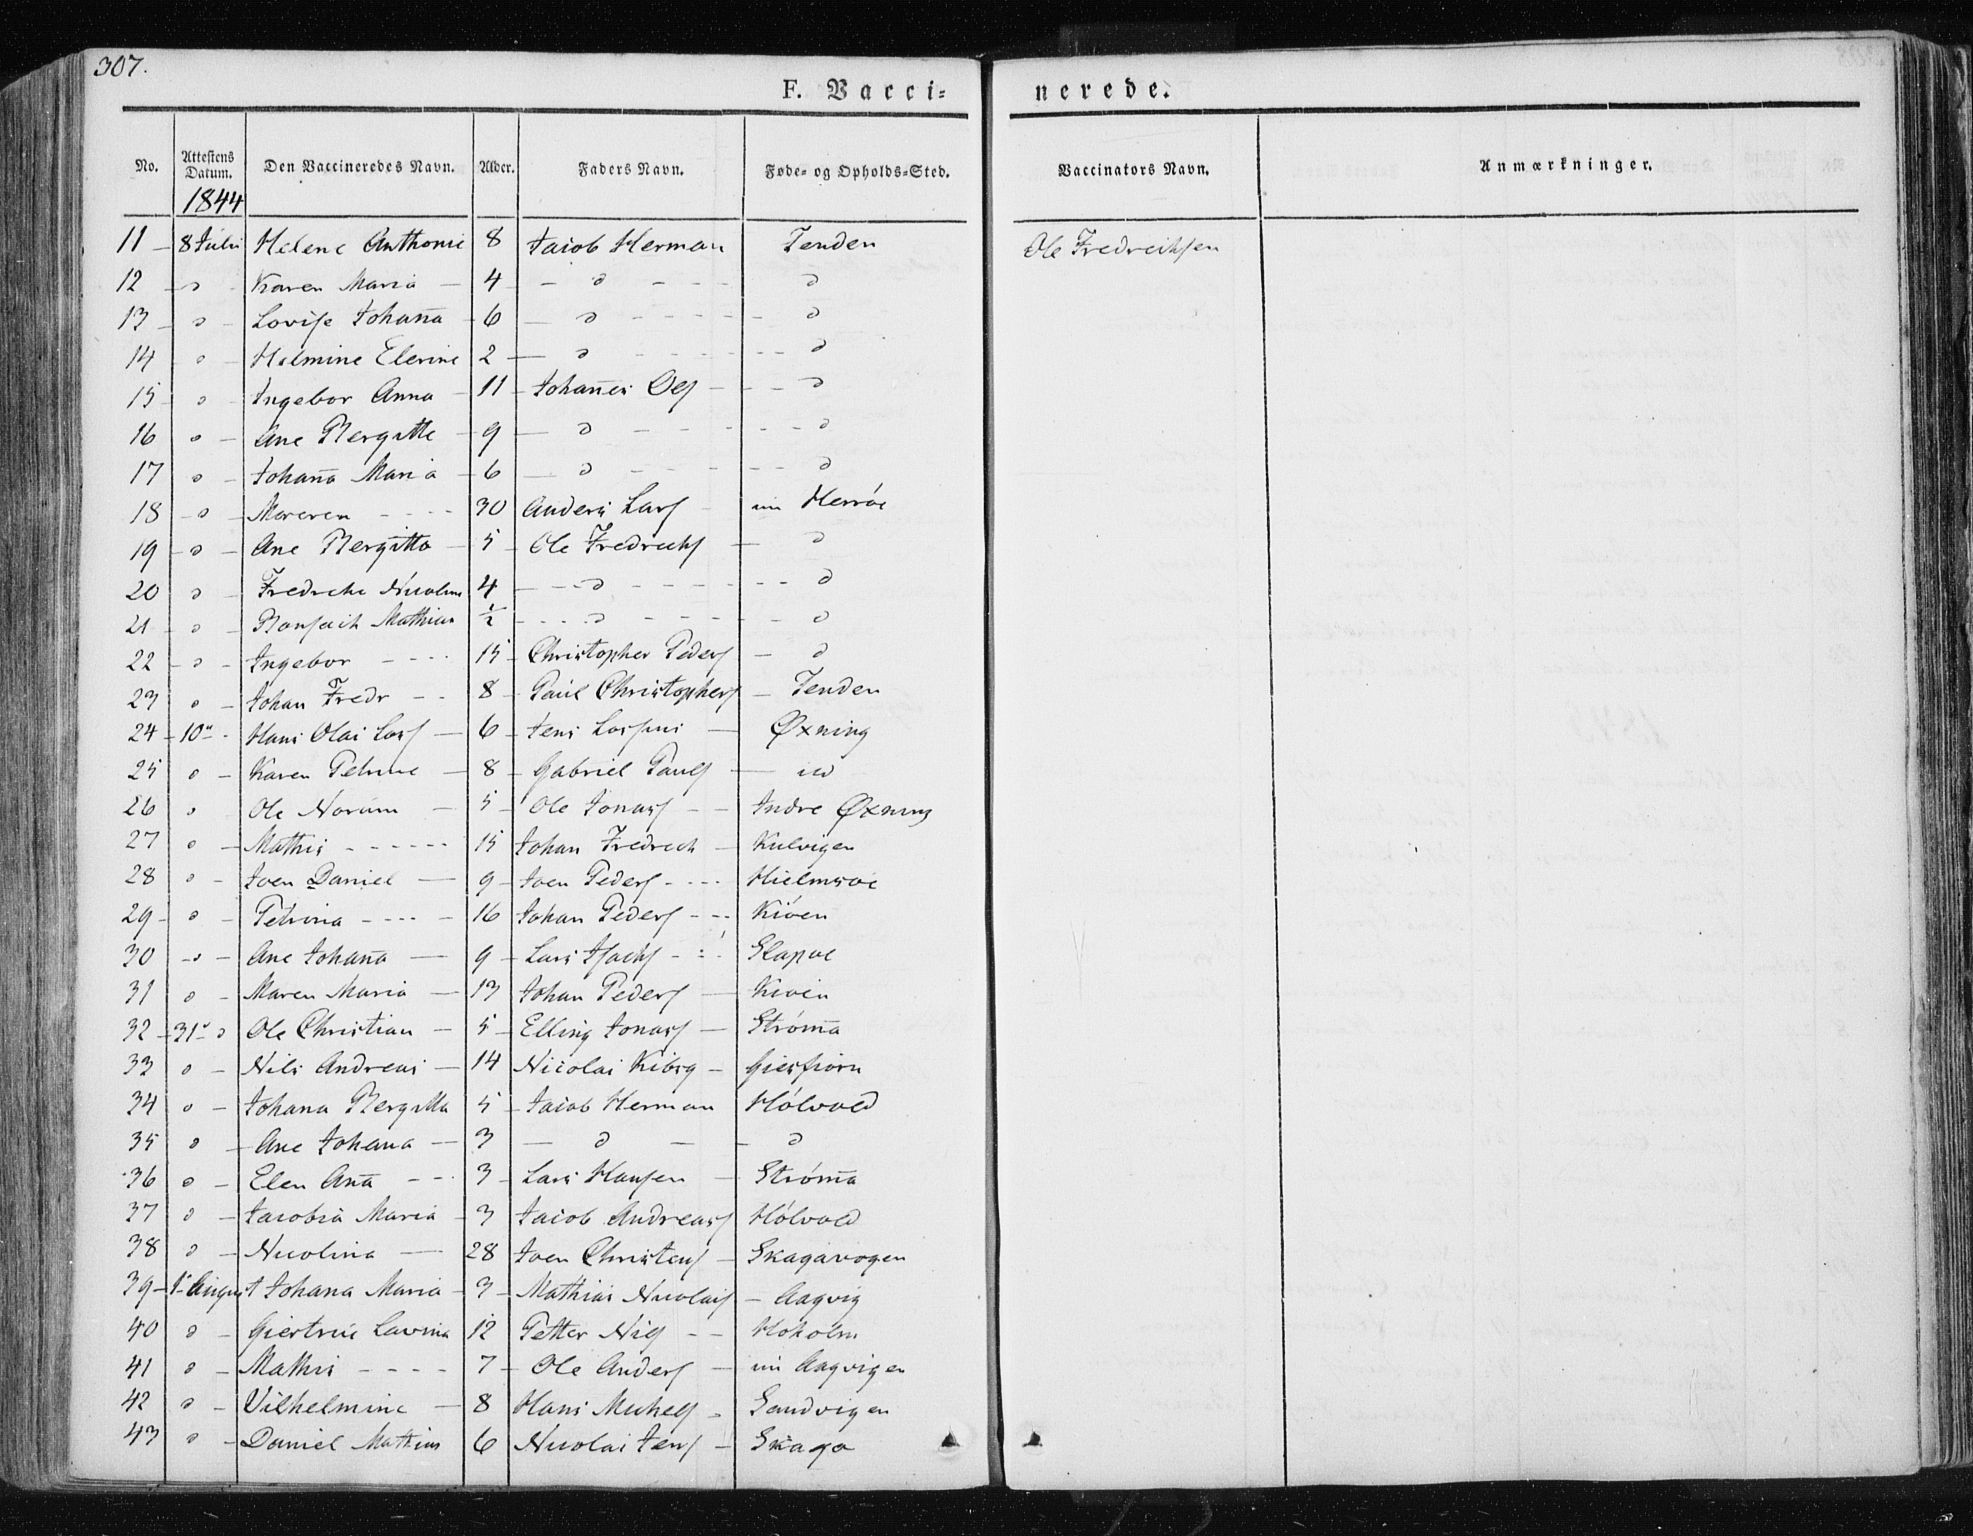 307.
F. Vacci=
nerede.
No. Attestens Datum. Den Vaccineredes Navn. Alder. Faders Navn. Føde- og Opholds-Sted. Vaccinators Navn. Anmærkninger.
1844
11 – 8 Julii Helene Anthonie 8 Jacob Herman Tenden Ole Fredreiksen
12 – " – Karen Maria – 4 – " – – – "
13 – " – Lovise Johan̄a – 6 – " – – – "
14 " – Helmine Elerine 2 – " – – – "
15 – " – Ingebor Anna – 11 – Johan̄es Ols – – – "
16 " – Ane Bergitte – 9 – " – – – "
17 " – Johan̄a Maria – 6 – " – – – "
18 – " – Mareren – – – 30 Anders Lars – Herröe
19 – " – Ane Bergitta – 5 – Ole Fredrichs – "
20 " – Fredrche Nicoline 4 – – " – – – "
21 – " – Mathias ½ – – " – – – "
22 – " – Ingebor – – – 15 – Christopher Peders – "
23 " – Johan Fredr – – 8 – Paul Christophers – Tenden
24 – 10" – Hans Olai Lars – 6 – Jens – Øxning
25 " – Karen Petrine – 8 – Gabriel Pauls –
26 " Ole Norum – 5 – Ole Jonas – – Indre Øxning
27 " – Mathis – – – – 15 Johan Fredrech – Kulvigen
28 " – Joen Daniel – 9 – Joen Peders – – – Hielmsöe
29 – " – Petrina – – – 16 Johan Peders – – – Kiöen
30 – " – Ane Johan̄a – 9 – Lars Isachs – – Slapöe
31 " – Maren Maria – 13 Johan Peders – Kiöen
32 – 31" " Ole Christian – 5 – Elling Jonas – Ström̄a
33 " – Nils Andreas – 14 Nicolai Kibsg – Giesfiorn
34 " – Johana Bergitta 5 – Jacob Herman Hölvold
35 " – Ane Johana – 3 – " – – "
36 " – Elen An̄a – – 3 – Lars Hansen – Ström̄a
37 " – Jacobia Maria – 3 Jacob Andreas Hölvold
38 " – Nicolina – 28 Joen Christens – Skagavogen
39 – 1" August Johana Maria – 3 – Mathias Nicolais – Aagvig
40 " – Giertrue Lavina 12 Petter Nils – – Hoholm
41 " – Mathis – – – – 7 – Ole Anders – Aagvigen
42 " – Vilhelmine – 8 Hans Michels – Sandvigen
43 " – Daniel Mathias 6 Nicolai Jens – Skaga